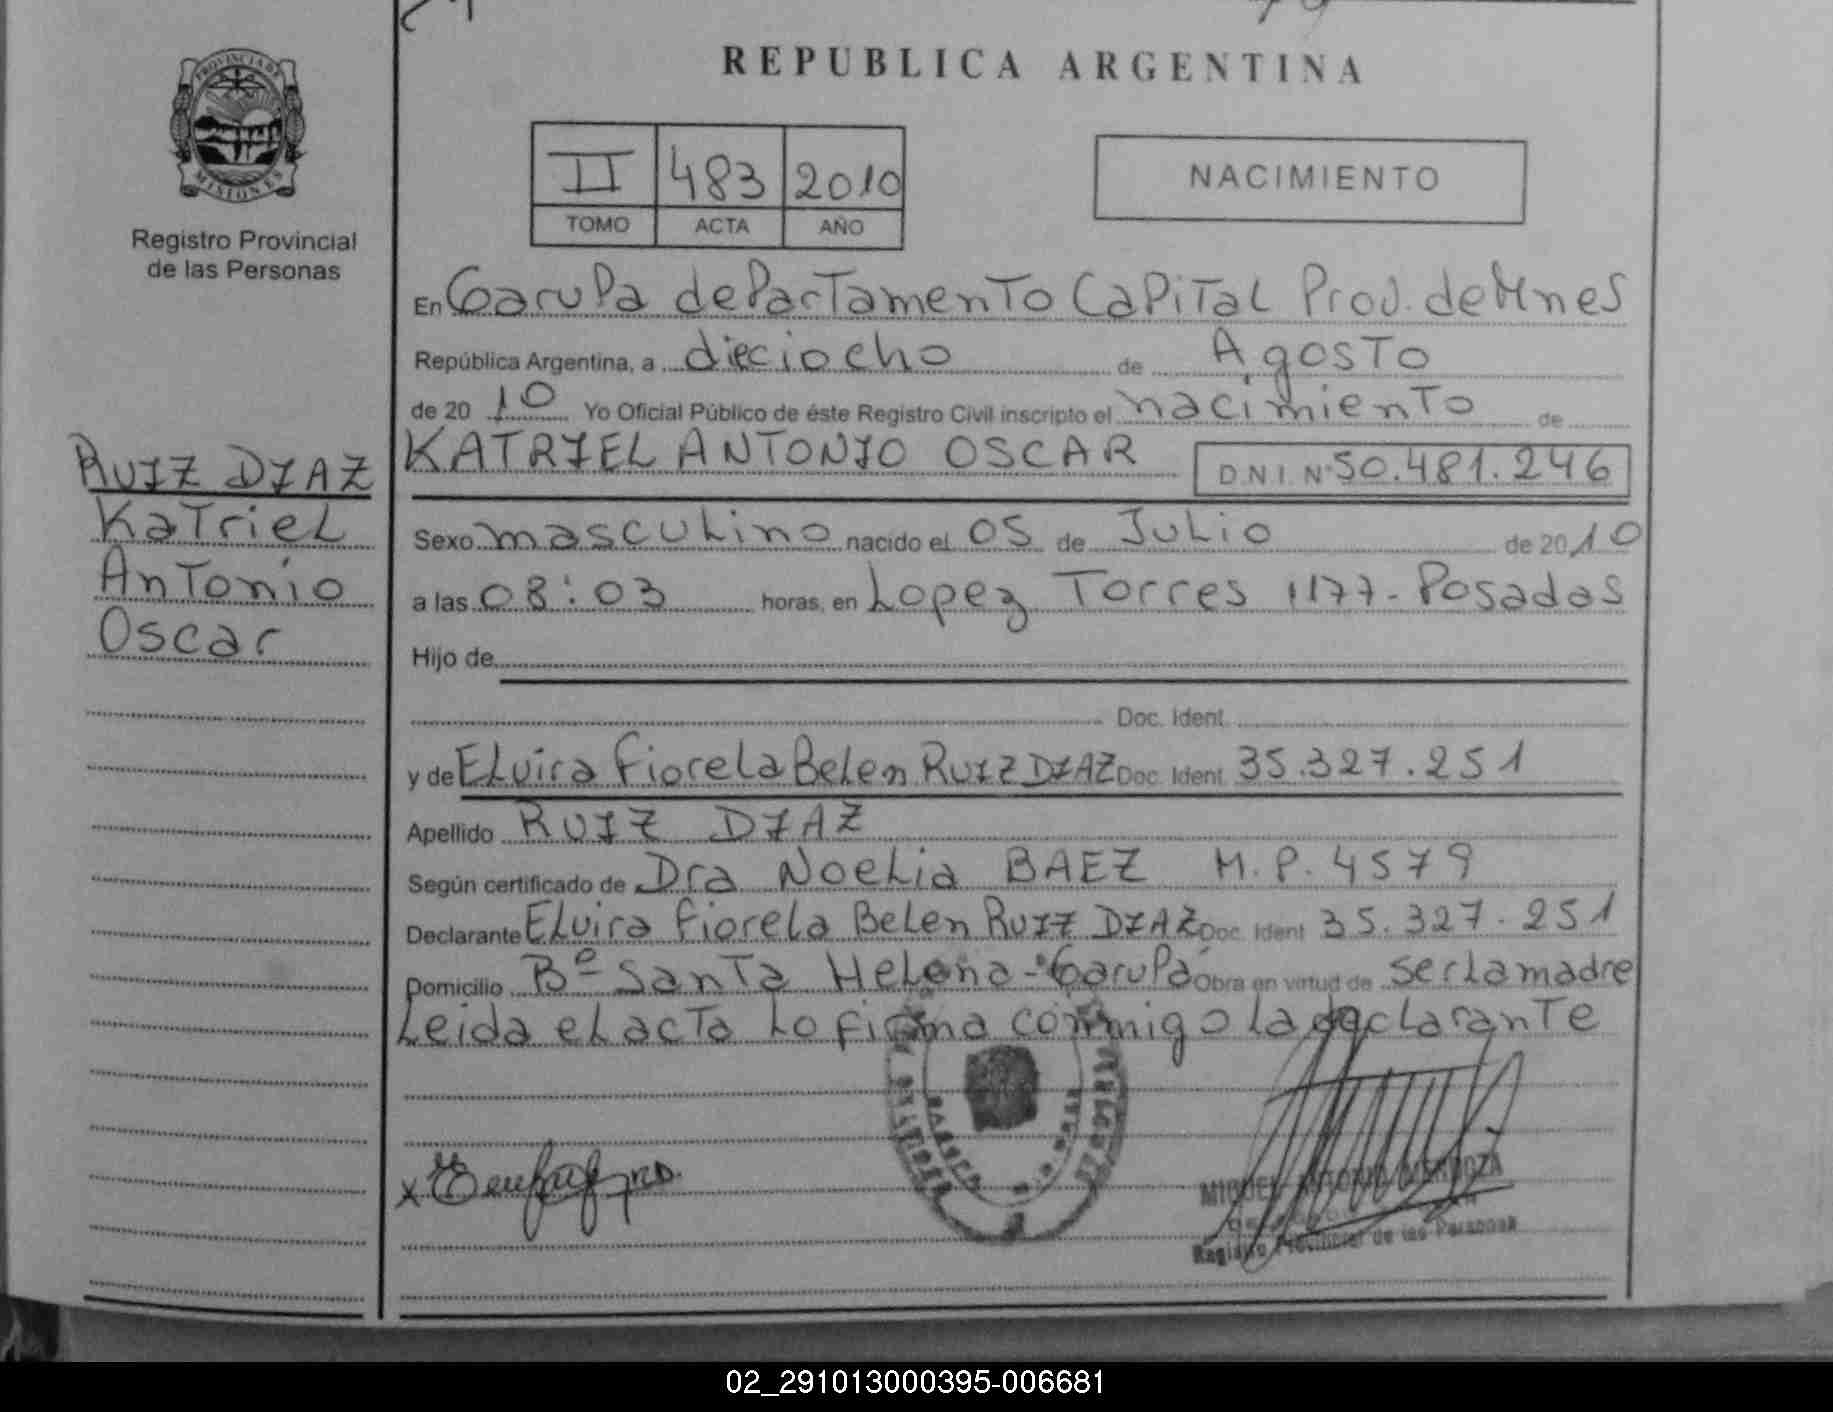 REPUBLICA ARGENTINA
PROVINCIA DE
MISIONES
Registro Provincial
de las Personas
II 483 2010
TOMO ACTA AÑO
NACIMIENTO
En Garupa departamento Capital Prov. de Mnes
República Argentina, a dieciocho de Agosto
de 2010 Yo Oficial Público de éste Registro Civil inscripto el nacimiento de
KATRIEL ANTONIO OSCAR D.N.I. Nº 50.481.246
RUIZ DIAZ
Katriel
Antonio
Oscar
Sexo masculino nacido el 05 de Julio de 2010
a las 08:03 horas, en Lopez Torres 1177 - Posadas
Hijo de
Doc. Ident.
y de Elvira Fiorela Belen RUIZ DIAZ Doc. Ident. 35.327.251
Apellido RUIZ DIAZ
Según certificado de Dra Noelia BAEZ M.P. 4579
Declarante Elvira Fiorela Belen RUIZ DIAZ Doc. Ident 35.327.251
Domicilio Bº Santa Helena - Garupá Obra en virtud de ser la madre
Leida el acta lo firma conmigo la declarante
MIGUEL ANTONIO MENDOZA
Registro Provincial de las Personas
02_291013000395-006681